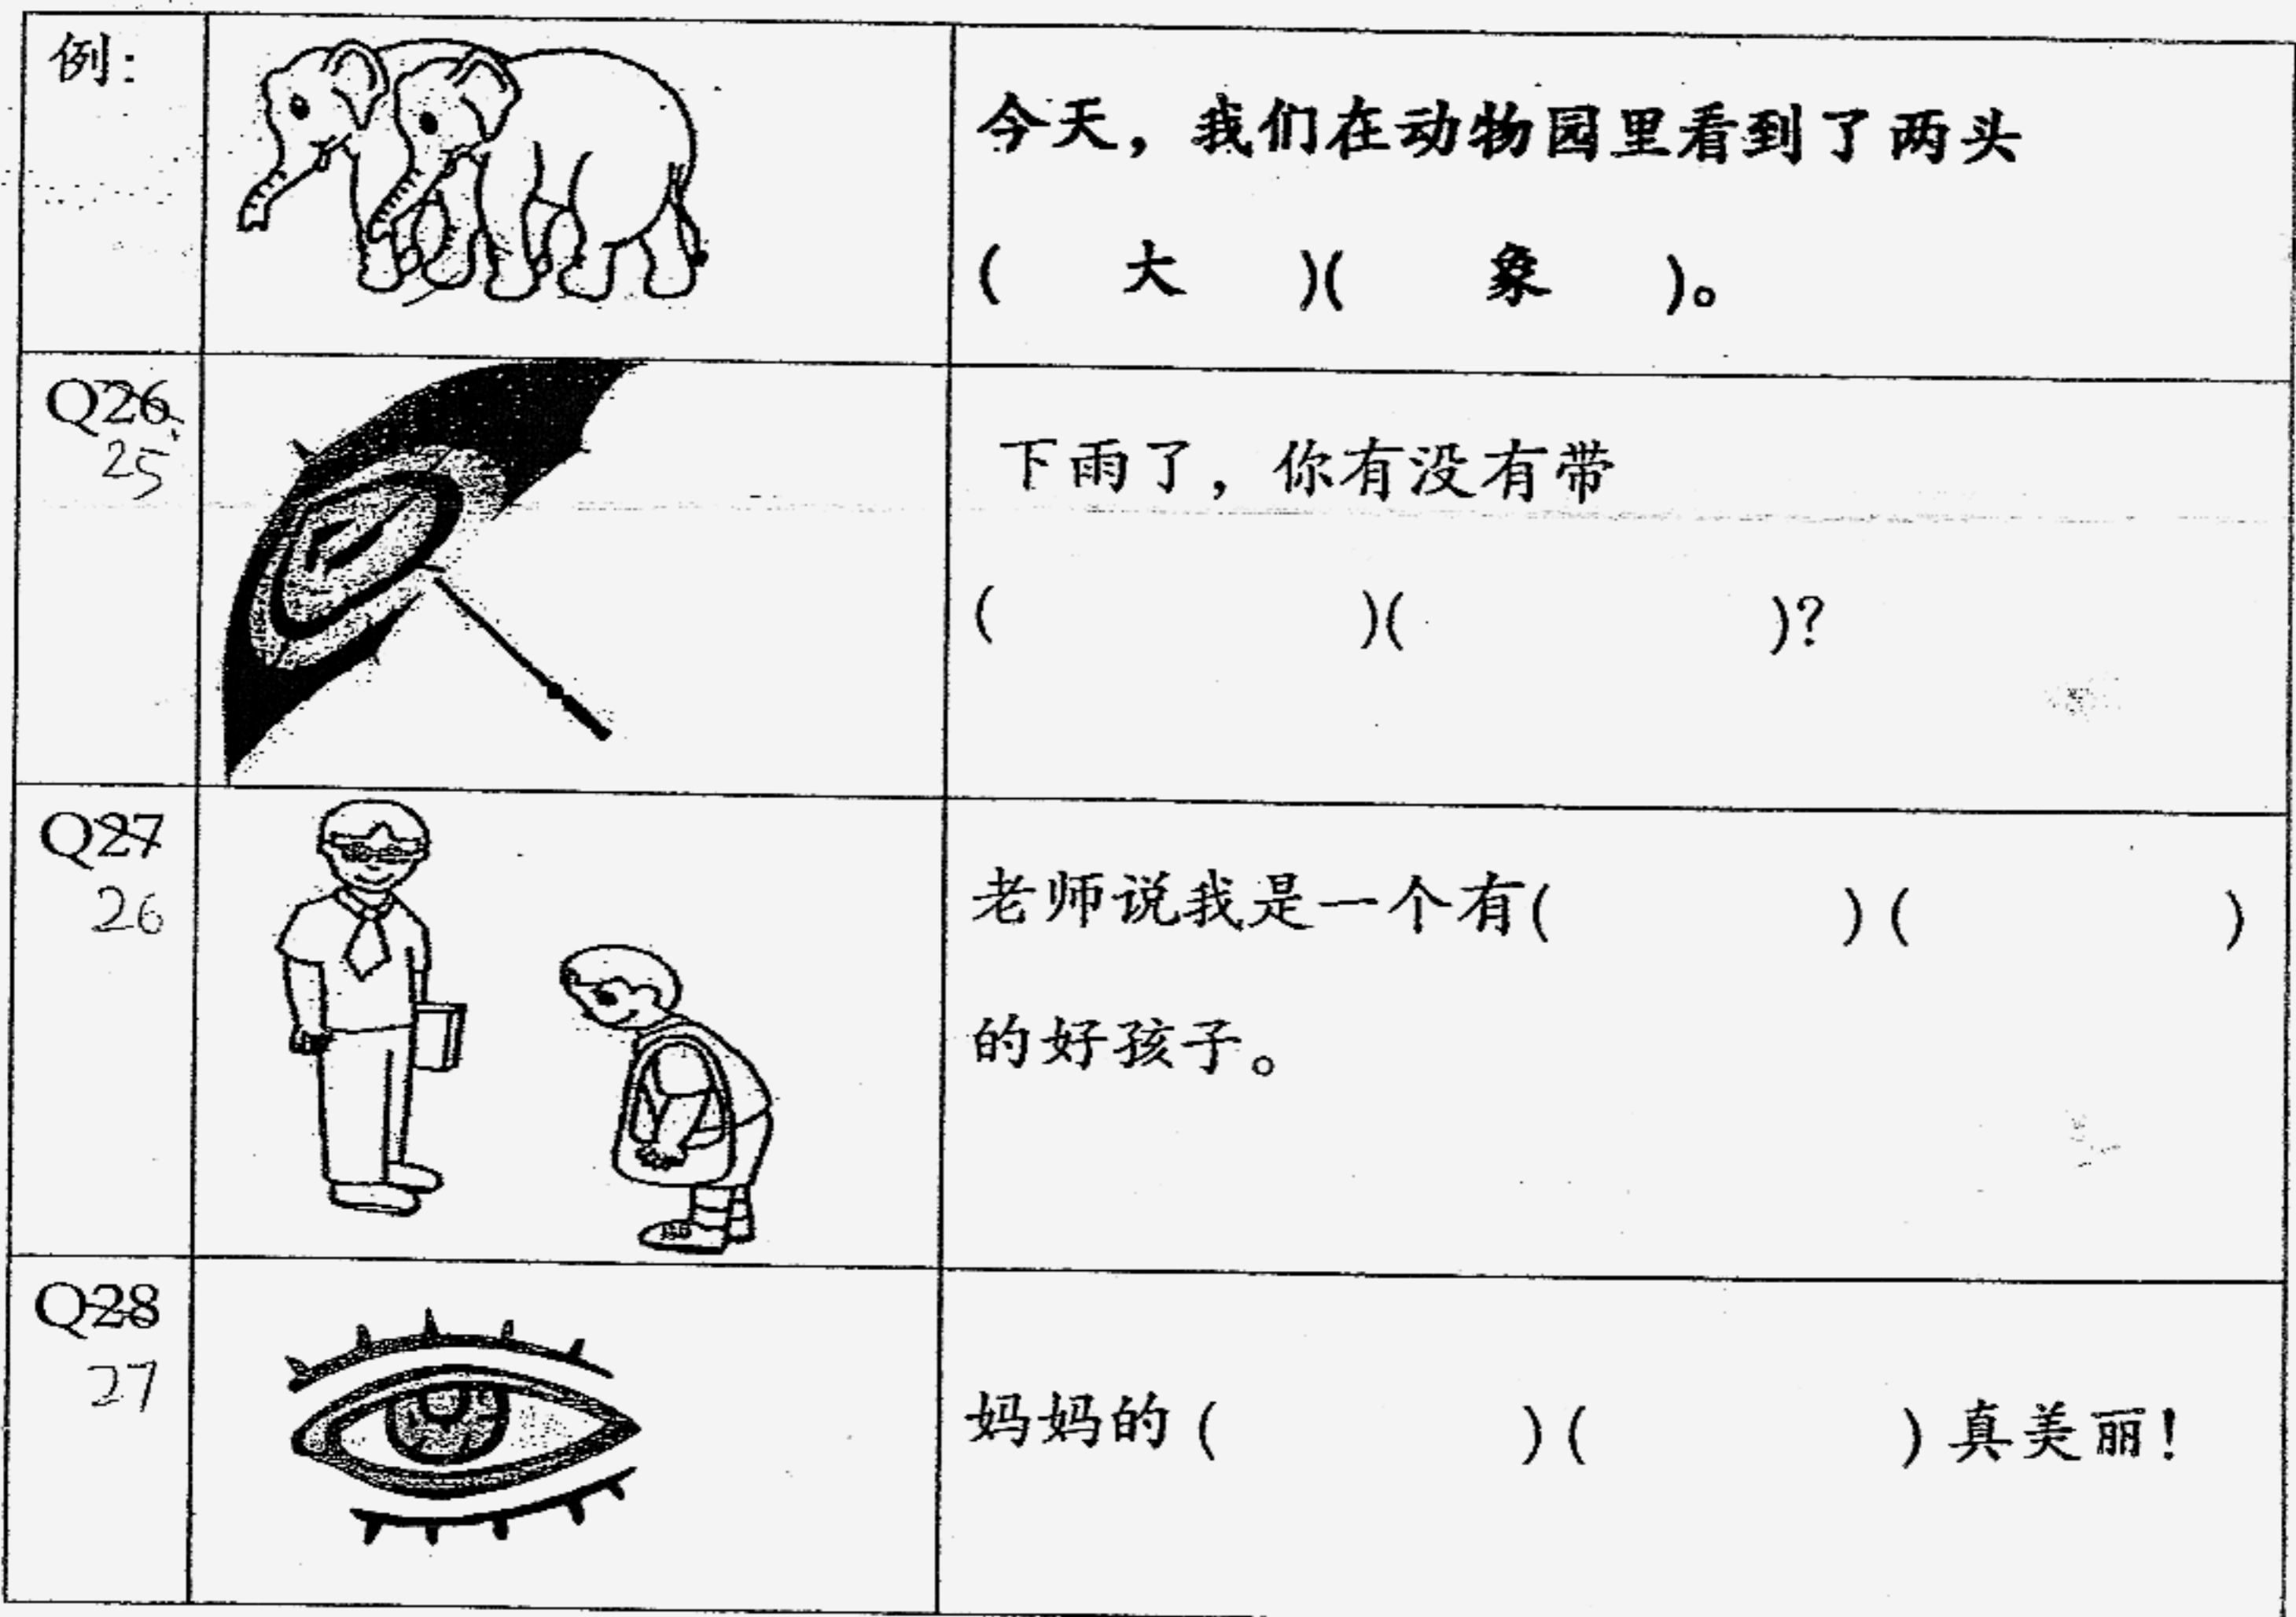 例:
今天，我们在动物园里看到了两头
( 大 )( 象 )。
Q26
25
下雨了，你有没有带
( )( )?
Q27
26
老师说我是一个有( ) ( )
的好孩子。
Q28
27
妈妈的 ( ) ( ) 真美丽!